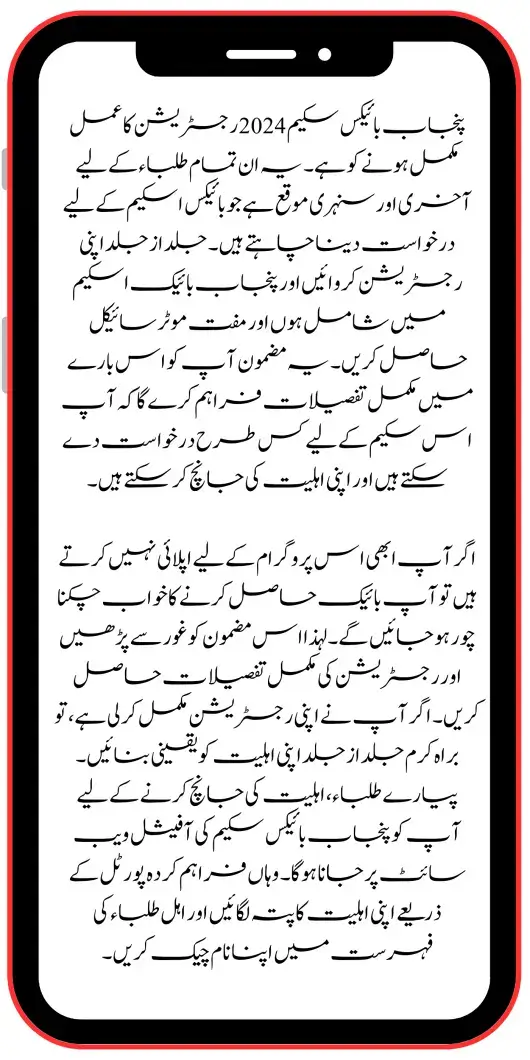 پنجاب بائیکس سکیم 2024 رجسٹریشن کا عمل
مکمل ہونے کو ہے۔ یہ ان تمام طلباء کے لیے
آخری اور سنہری موقع ہے جو بائیکس اسکیم کے لیے
درخواست دینا چاہتے ہیں۔ جلد از جلد اپنی
رجسٹریشن کروائیں اور پنجاب بائیک اسکیم
میں شامل ہوں اور مفت موٹر سائیکل
حاصل کریں۔ یہ مضمون آپ کو اس بارے
میں مکمل تفصیلات فراہم کرے گا کہ آپ
اس سکیم کے لیے کس طرح درخواست دے
سکتے ہیں اور اپنی اہلیت کی جانچ کر سکتے ہیں۔
اگر آپ ابھی اس پروگرام کے لیے اپلائی نہیں کرتے
ہیں تو آپ بائیک حاصل کرنے کا خواب چکنا
چور ہو جائیں گے۔ لہذا اس مضمون کو غور سے پڑھیں
اور رجسٹریشن کی مکمل تفصیلات حاصل
کریں۔ اگر آپ نے اپنی رجسٹریشن مکمل کر لی ہے، تو
براہ کرم جلد از جلد اپنی اہلیت کو یقینی بنائیں۔
پیارے طلباء، اہلیت کی جانچ کرنے کے لیے
آپ کو پنجاب بائیکس سکیم کی آفیشل ویب
سائٹ پر جانا ہوگا۔ وہاں فراہم کردہ پورٹل کے
ذریعے اپنی اہلیت کا پتہ لگائیں اور اہل طلباء کی
فہرست میں اپنا نام چیک کریں۔